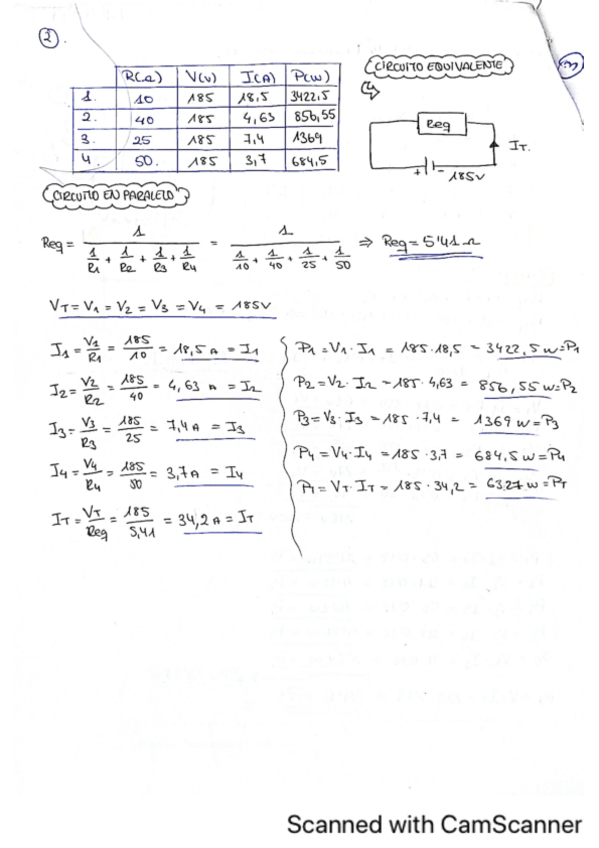 2.
R(Ω) V(V) I(A) P(W)
1. 10 185 18,5 3422,5
2. 40 185 4,63 856,55
3. 25 185 7,4 1369
4. 50. 185 3,7 684,5
CIRCUITO EQUIVALENTE
Req
IT.
+ - 185V
CIRCUITO EN PARALELO
Req = 1 / (1/R1 + 1/R2 + 1/R3 + 1/R4) = 1 / (1/10 + 1/40 + 1/25 + 1/50) ⇒ Req = 5'41 Ω
VT = V1 = V2 = V3 = V4 = 185V
I1 = V1/R1 = 185/10 = 18,5 A = I1
I2 = V2/R2 = 185/40 = 4,63 A = I2
I3 = V3/R3 = 185/25 = 7,4 A = I3
I4 = V4/R4 = 185/50 = 3,7 A = I4
IT = VT/Req = 185/5,41 = 34,2 A = IT
P1 = V1 · I1 = 185 · 18,5 = 3422,5 W = P1
P2 = V2 · I2 = 185 · 4,63 = 856,55 W = P2
P3 = V3 · I3 = 185 · 7,4 = 1369 W = P3
P4 = V4 · I4 = 185 · 3,7 = 684,5 W = P4
PT = VT · IT = 185 · 34,2 = 6327 W = PT
Scanned with CamScanner